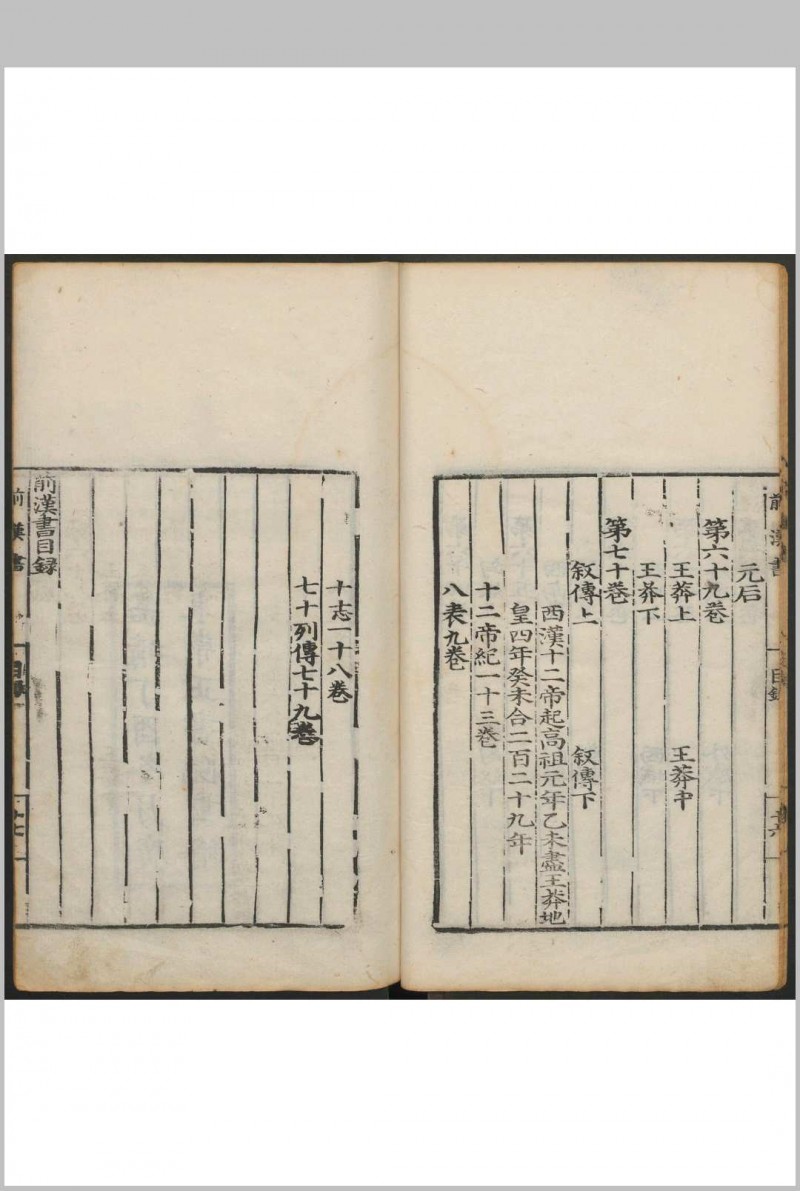 前漢書
目錄
元后
第六十九卷
王莽上 王莽中
王莽下
第七十卷
叙傳上 叙傳下
西漢十二帝起高祖元年乙未盡王莽地
皇四年癸未合二百二十九年
十二帝紀一十三卷
八表九卷
十志一十八卷
七十列傳七十九卷
前漢書目録
前漢書
目録